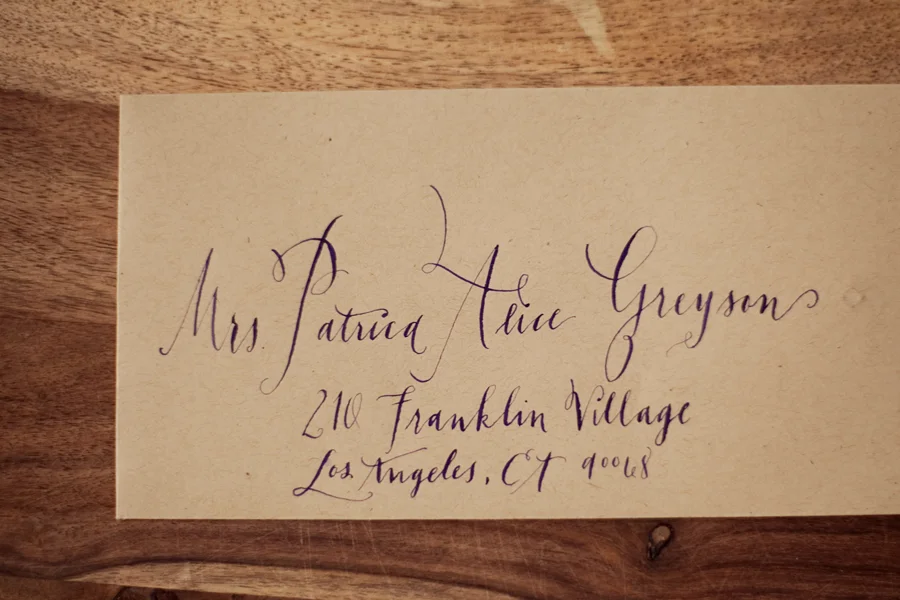 Mrs. Patrica Alice Greyson
210 Franklin Village
Los Angeles, CT 90068